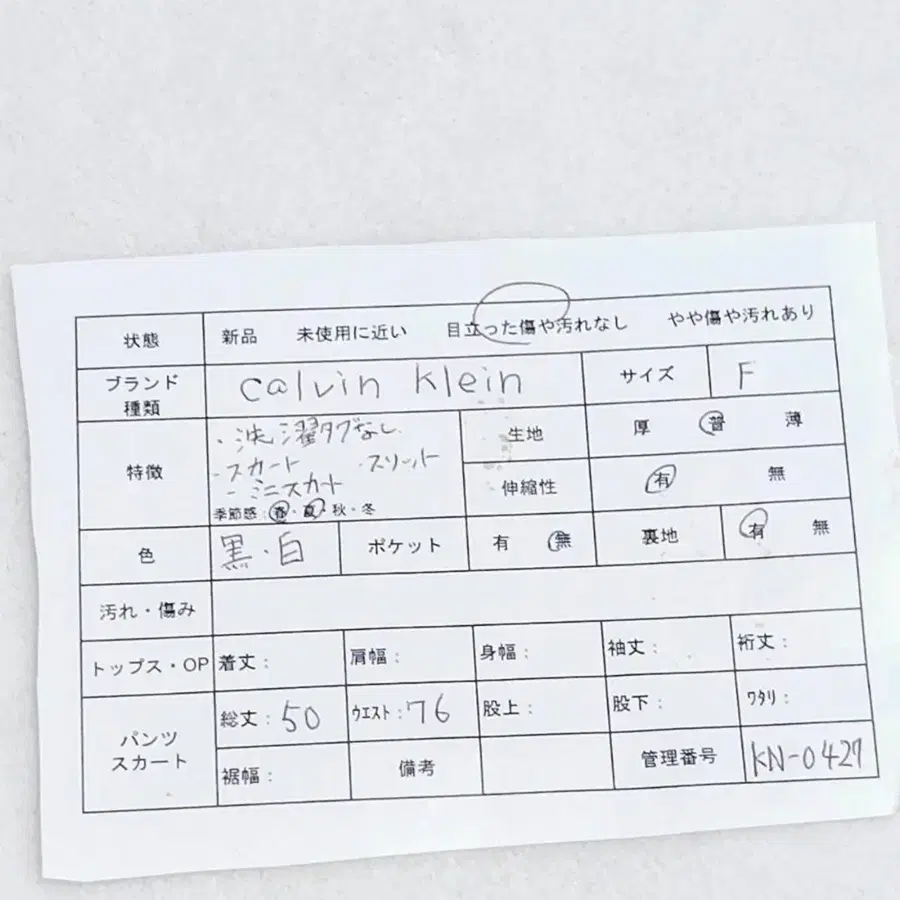 状態 新品 未使用に近い 目立った傷や汚れなし やや傷や汚れあり
ブランド
種類
calvin klein
サイズ F
特徴
・洗濯タグなし
・スカート ・スリット
・ミニスカート
季節感:春・夏・秋・冬
生地 厚 普 薄
伸縮性 有 無
色 黒・白 ポケット 有 無 裏地 有 無
汚れ・傷み
トップス・OP 着丈: 肩幅: 身幅: 袖丈: 裄丈:
パンツ
スカート
総丈:50 ウエスト:76 股上: 股下: ワタリ:
裾幅: 備考 管理番号 KN-0427